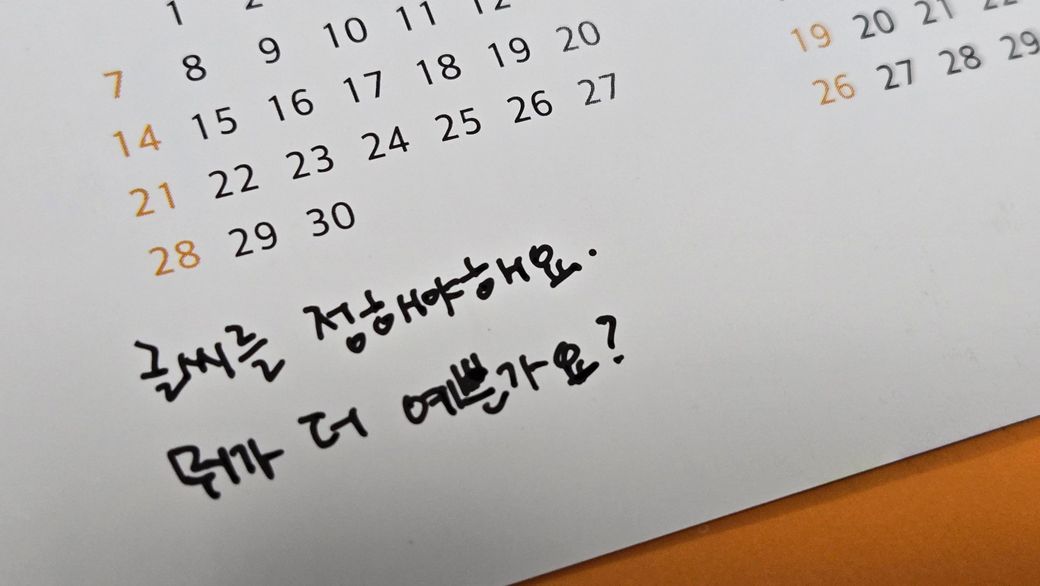 1 2
7 8 9 10 11 12
14 15 16 17 18 19 20
21 22 23 24 25 26 27
28 29 30
19 20 21 22
26 27 28 29
글씨를 정해야해요.
뭐가 더 예쁜가요?